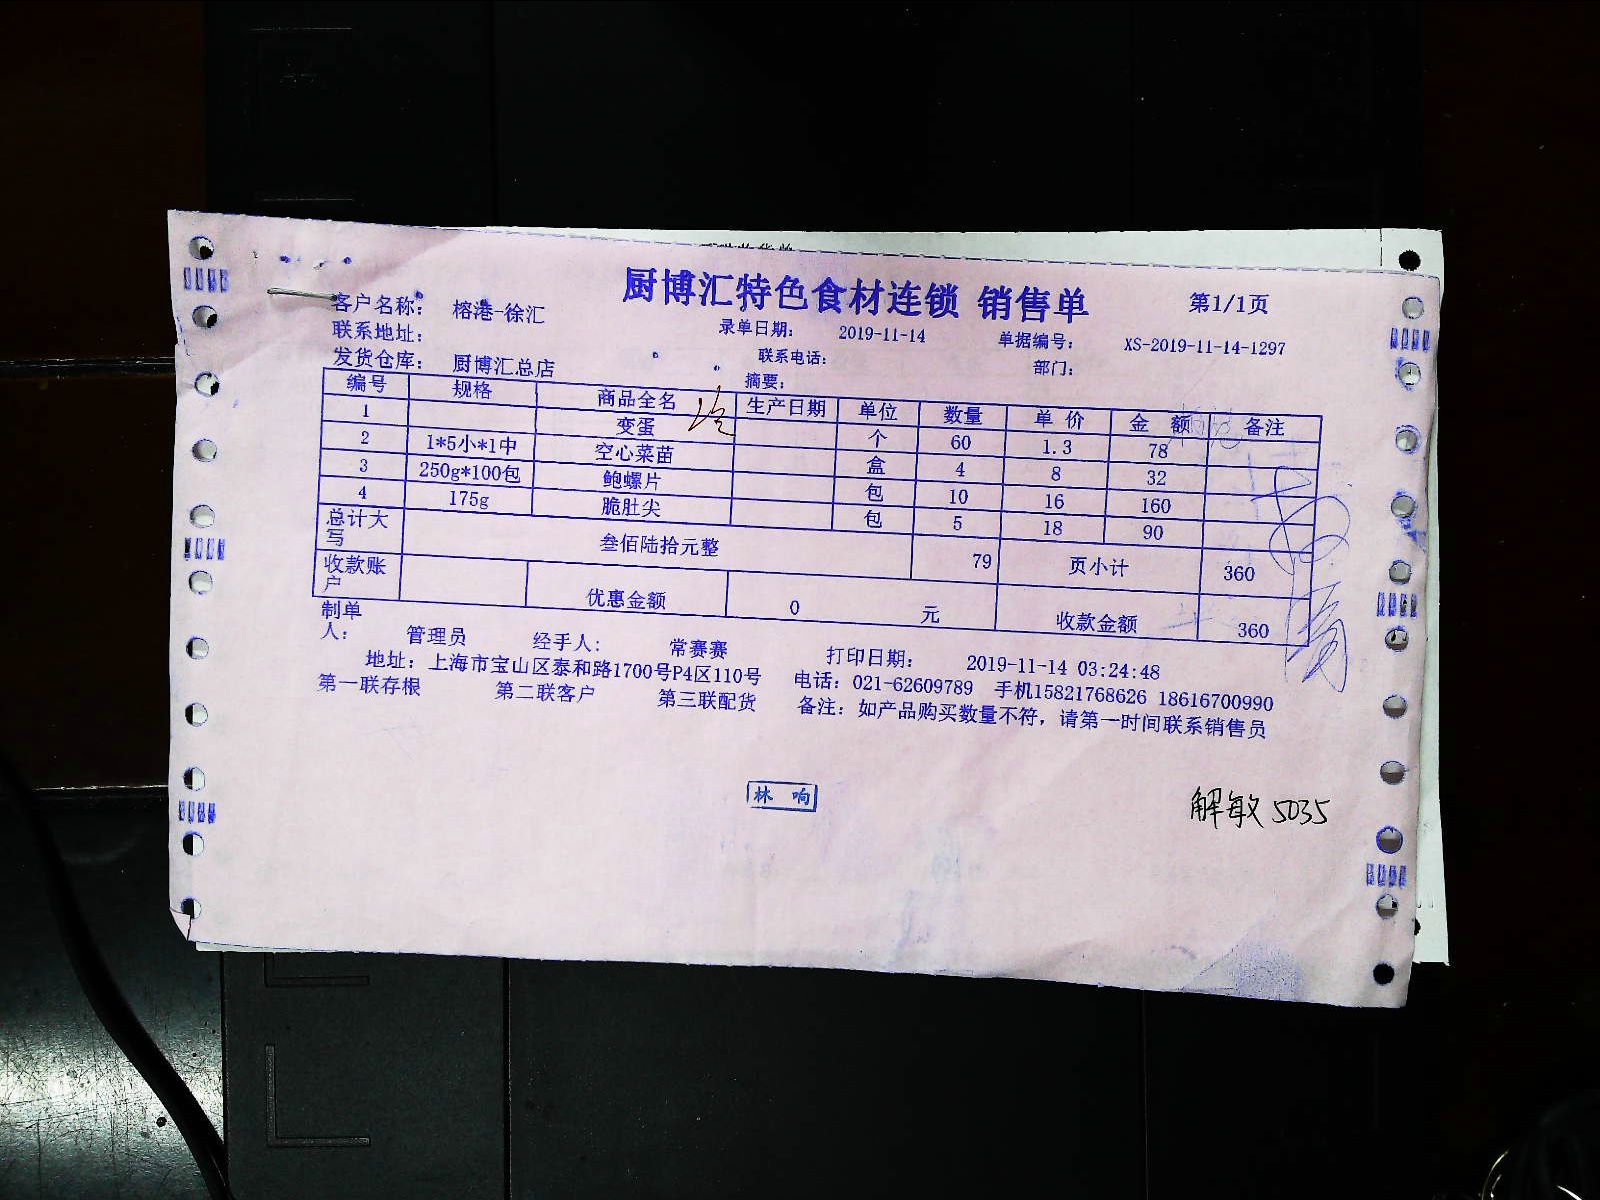 厨博汇特色食材连锁 销售单 第1/1页
客户名称： 榕港-徐汇 录单日期： 2019-11-14 单据编号： XS-2019-11-14-1297
联系地址： 联系电话： 部门：
发货仓库： 厨博汇总店 摘要：
编号 规格 商品全名 生产日期 单位 数量 单 价 金 额 备注
1 变蛋 个 60 1.3 78
2 1*5小*1中 空心菜苗 盒 4 8 32
3 250g*100包 鲍螺片 包 10 16 160
4 175g 脆肚尖 包 5 18 90
总计大写 叁佰陆拾元整 79 页小计 360
收款账户 优惠金额 0 元 收款金额 360
制单人： 管理员 经手人： 常赛赛 打印日期： 2019-11-14 03:24:48
地址：上海市宝山区泰和路1700号P4区110号 电话：021-62609789 手机15821768626 18616700990
第一联存根 第二联客户 第三联配货 备注：如产品购买数量不符，请第一时间联系销售员
林 响
解敏 5035